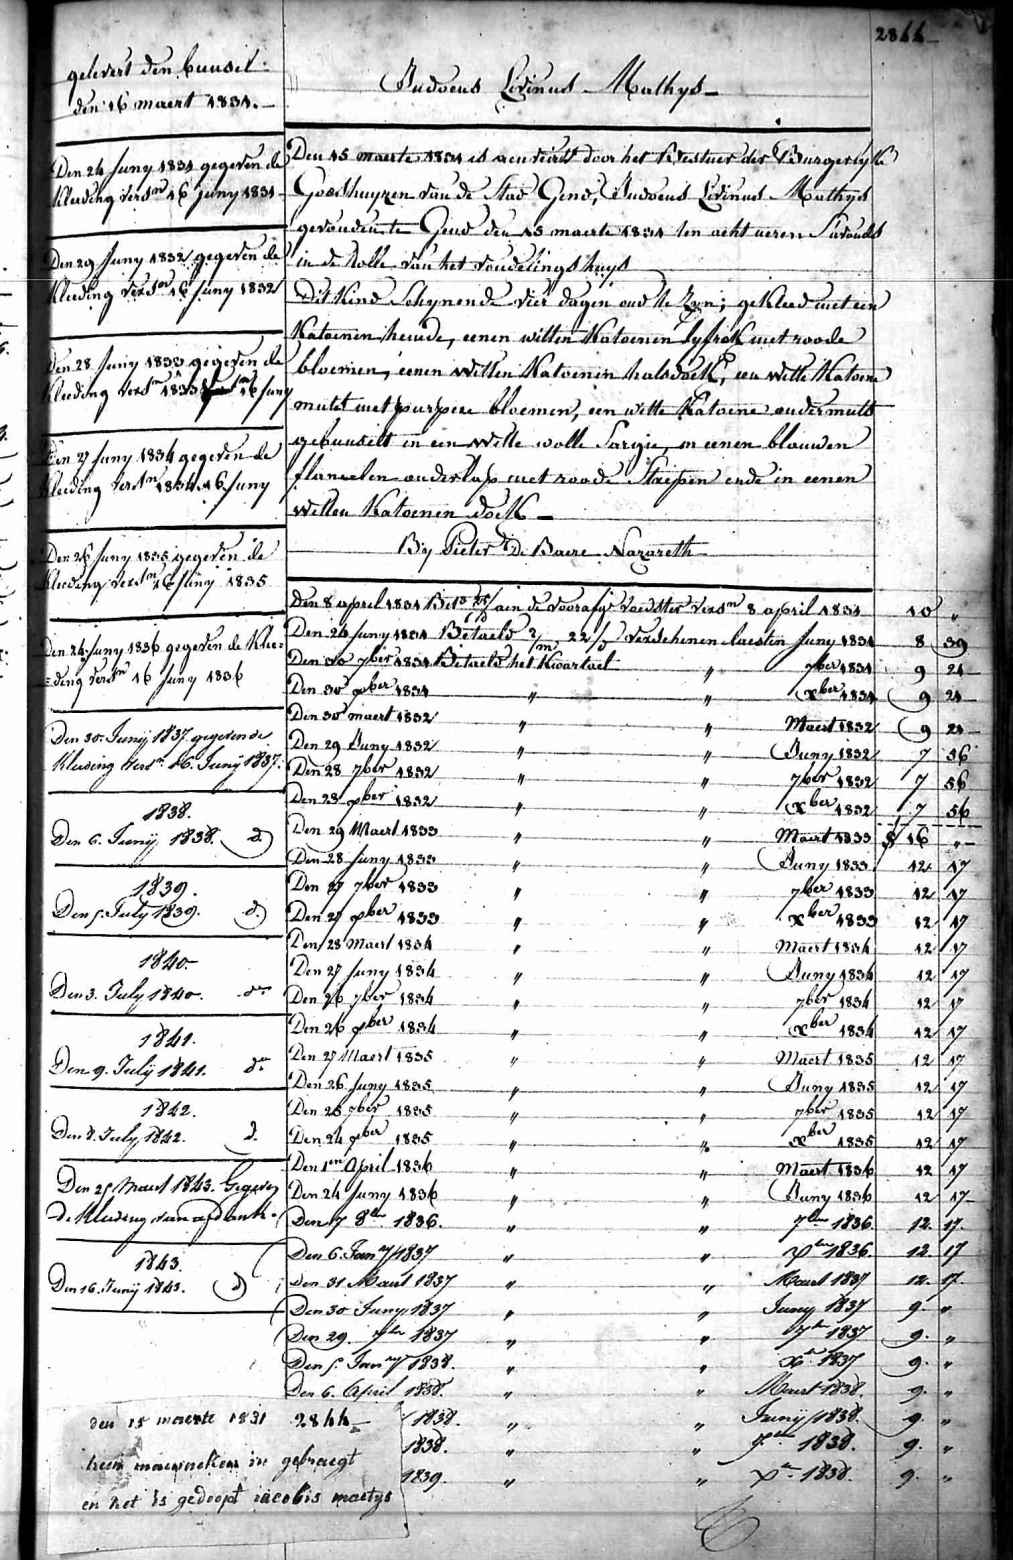 2844
gelevert den bunsel
den 16 maert 1831.
Judocus Livinus Mathys
Den 24 Juny 1831 gegeven de
Kleeding versn 16 Juny 1831
Den 29 Juny 1832 gegeven de
Kleeding versn 16 Juny 1832
Den 28 Juny 1833 gegeven de
Kleeding versn 1833 16 Juny
Den 27 Juny 1834 gegeven de
Kleeding versn 1834 16 Juny
Den 26 Juny 1835 gegeven de
Kleeding versn 16 Juny 1835
Den 24 Juny 1836 gegeven de Klee=
=ding versn 16 Juny 1836
Den 30 Junij 1837 gegeven de
Kleeding versn 16 Junij 1837.
1838.
Den 6. Junij 1838. d.
1839.
Den 5. July 1839. d.
1840.
Den 3. July 1840. do
1841.
Den 9. Julij 1841. do
1842.
Den 8. July 1842. d.
Den 25 Maert 1843. Gegeven
de Kleeding van
1843.
Den 16. Junij 1843. d
Den 15 maerte 1831 is aenveird door het Bestuer der Burgerlyke
Godshuyzen van de Stad Gend, Judocus Livinus Mathys
gevonden te Gend den 15 maerte 1831 ten acht ueren s'avonds
in de rolle van het vondelingshuys
Dit Kind schynende vier dagen oud te zyn; gekleed met een
Katoenen hemde, eenen witten Katoenen lyfrok met roode
bloemen, eenen witten Katoenen halsdoek, een witte Katoene
muts met purpere bloemen, een witte Katoene ondermuts
gebunselt in een witte wolle Sargie, en eenen blauwen
flanelen onderlap met roode Straepen ende in eenen
witten Katoenen doek
By Pieter De Baere Nazareth
Den 8 april 1831 aen de voorafge voedster versn 8 april 1831 10 "
Den 24 Juny 1831 Betaeld 22 verschenen laesten Juny 1831 8 39
Den 30 7ber 1831 Betaeld het Kwartael " 7ber 1831 9 24
Den 30 xber 1831 " " xber 1831 9 24
Den 30 maert 1832 " " Maert 1832 9 24
Den 29 Juny 1832 " " Juny 1832 7 56
Den 28 7ber 1832 " " 7ber 1832 7 56
Den 28 xber 1832 " " xber 1832 7 56
Den 29 Maert 1833 " " Maert 1833 16 "
Den 28 Juny 1833 " " Juny 1833 12 17
Den 27 7ber 1833 " " 7ber 1833 12 17
Den 27 xber 1833 " " xber 1833 12 17
Den 28 Maert 1834 " " Maert 1834 12 17
Den 27 Juny 1834 " " Juny 1834 12 17
Den 26 7ber 1834 " " 7ber 1834 12 17
Den 26 xber 1834 " " xber 1834 12 17
Den 27 Maert 1835 " " Maert 1835 12 17
Den 26 Juny 1835 " " Juny 1835 12 17
Den 25 7ber 1835 " " 7ber 1835 12 17
Den 24 xber 1835 " " xber 1835 12 17
Den 1en April 1836 " " Maert 1836 12 17
Den 24 Juny 1836 " " Juny 1836 12 17
Den 7 8ber 1836. " " 7ber 1836 12. 17.
Den 6. Jany 1837 " " xber 1836. 12. 17
Den 31 Maert 1837 " " Maert 1837 12. 17.
Den 30 Juny 1837 " " Juny 1837 9. "
Den 29. 7ber 1837 " " 7ber 1837 9. "
Den 5. Jany 1838. " " xber 1837 9. "
Den 6. April 1838. " " Maert 1838. 9. "
1838. " " Junij 1838. 9. "
1838. " " 7ber 1838. 9. "
1839. " " xber 1838. 9. "
den 15 maerte 1831 2844
in gebraegt
en het is gedoopt iacobis maetys